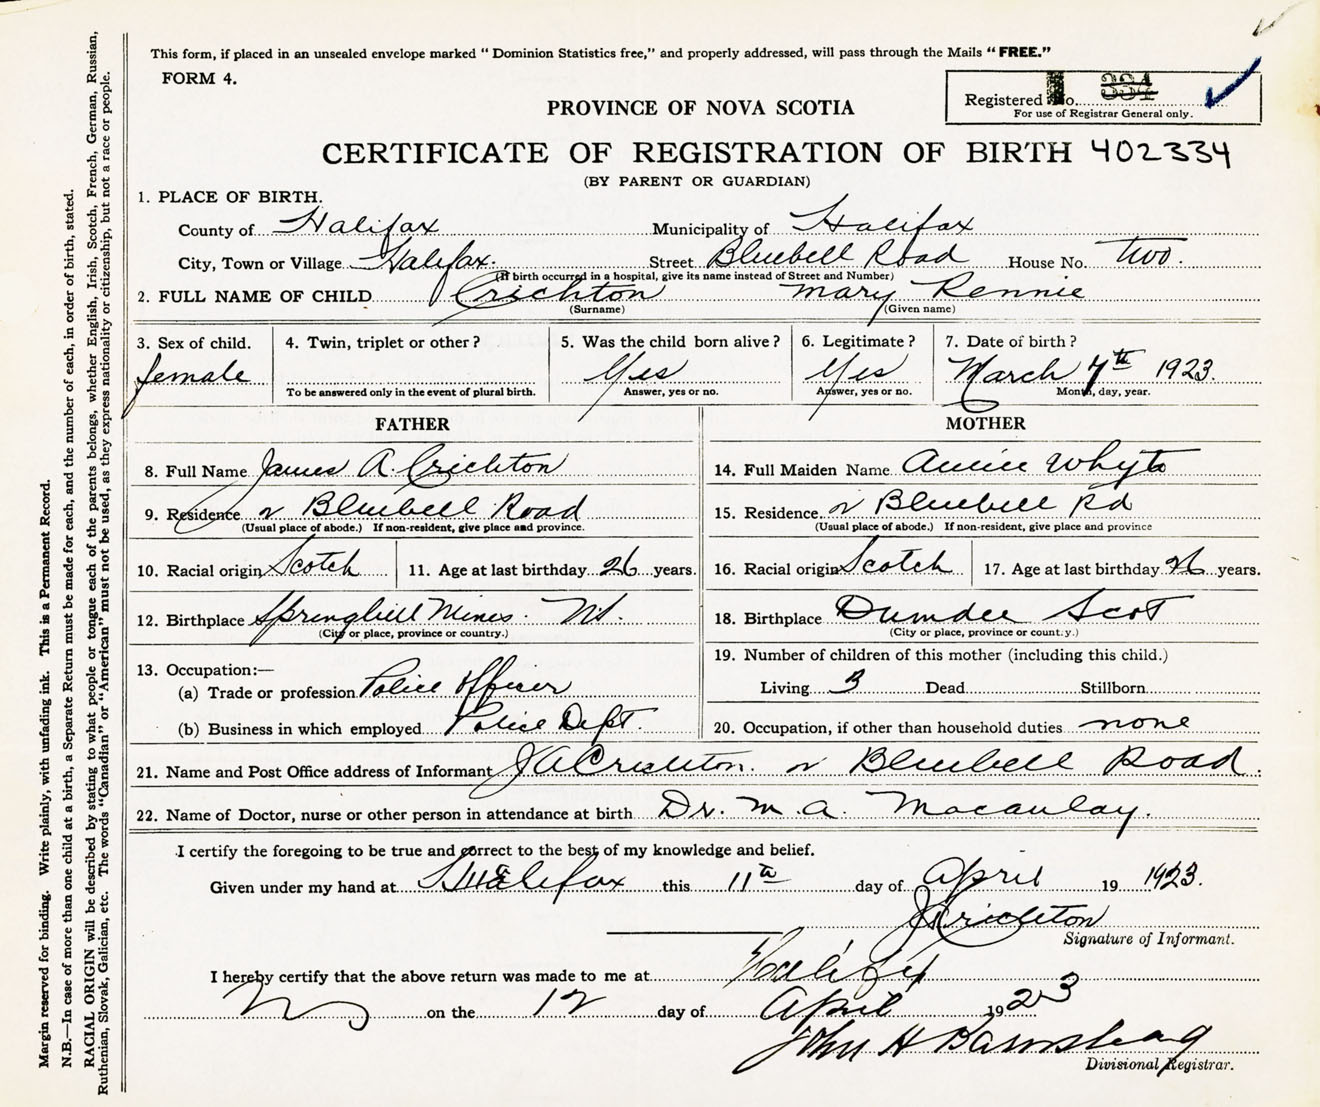 This form, if placed in an unsealed envelope marked " Dominion Statistics free," and properly addressed, will pass through the Mails " FREE."
FORM 4.
Registered No. 334
For use of Registrar General only.
PROVINCE OF NOVA SCOTIA
CERTIFICATE OF REGISTRATION OF BIRTH 402334
(BY PARENT OR GUARDIAN)
1. PLACE OF BIRTH.
County of Halifax Municipality of Halifax
City, Town or Village Halifax. Street Bluebell Road House No. two.
(If birth occurred in a hospital, give its name instead of Street and Number)
2. FULL NAME OF CHILD Crichton Mary Rennie
(Surname) (Given name)
3. Sex of child. 4. Twin, triplet or other? 5. Was the child born alive? 6. Legitimate? 7. Date of birth?
female Yes Yes March 7th 1923.
To be answered only in the event of plural birth. Answer, yes or no. Answer, yes or no. Month, day, year.
FATHER MOTHER
8. Full Name James A. Crichton 14. Full Maiden Name Whyte
9. Residence 2 Bluebell Road 15. Residence 2 Bluebell Rd
(Usual place of abode.) If non-resident, give place and province. (Usual place of abode.) If non-resident, give place and province
10. Racial origin Scotch 11. Age at last birthday 26 years. 16. Racial origin Scotch 17. Age at last birthday 26 years.
12. Birthplace Springhill Mines. NS. 18. Birthplace Dundee Scot
(City or place, province or country.) (City or place, province or country.)
13. Occupation:— 19. Number of children of this mother (including this child.)
(a) Trade or profession Police Officer Living 3 Dead Stillborn
(b) Business in which employed Police Dept. 20. Occupation, if other than household duties none
21. Name and Post Office address of Informant JA Crichton. 2 Bluebell Road.
22. Name of Doctor, nurse or other person in attendance at birth Dr. M. A. Macaulay.
I certify the foregoing to be true and correct to the best of my knowledge and belief.
Given under my hand at Halifax this 11th day of April 19 1923.
JA Crichton
Signature of Informant.
I hereby certify that the above return was made to me at Halifax
on the 12 day of April 1923
John H
Divisional Registrar.
Margin reserved for binding. Write plainly, with unfading ink. This is a Permanent Record.
N.B.—In case of more than one child at a birth, a Separate Return must be made for each, and the number of each, in order of birth, stated.
RACIAL ORIGIN will be described by stating to what people or tongue each of the parents belongs, whether English, Irish, Scotch, French, German, Russian,
Ruthenian, Slovak, Galician, etc. The words "Canadian" or "American" must not be used, as they express nationality or citizenship, but not a race or people.